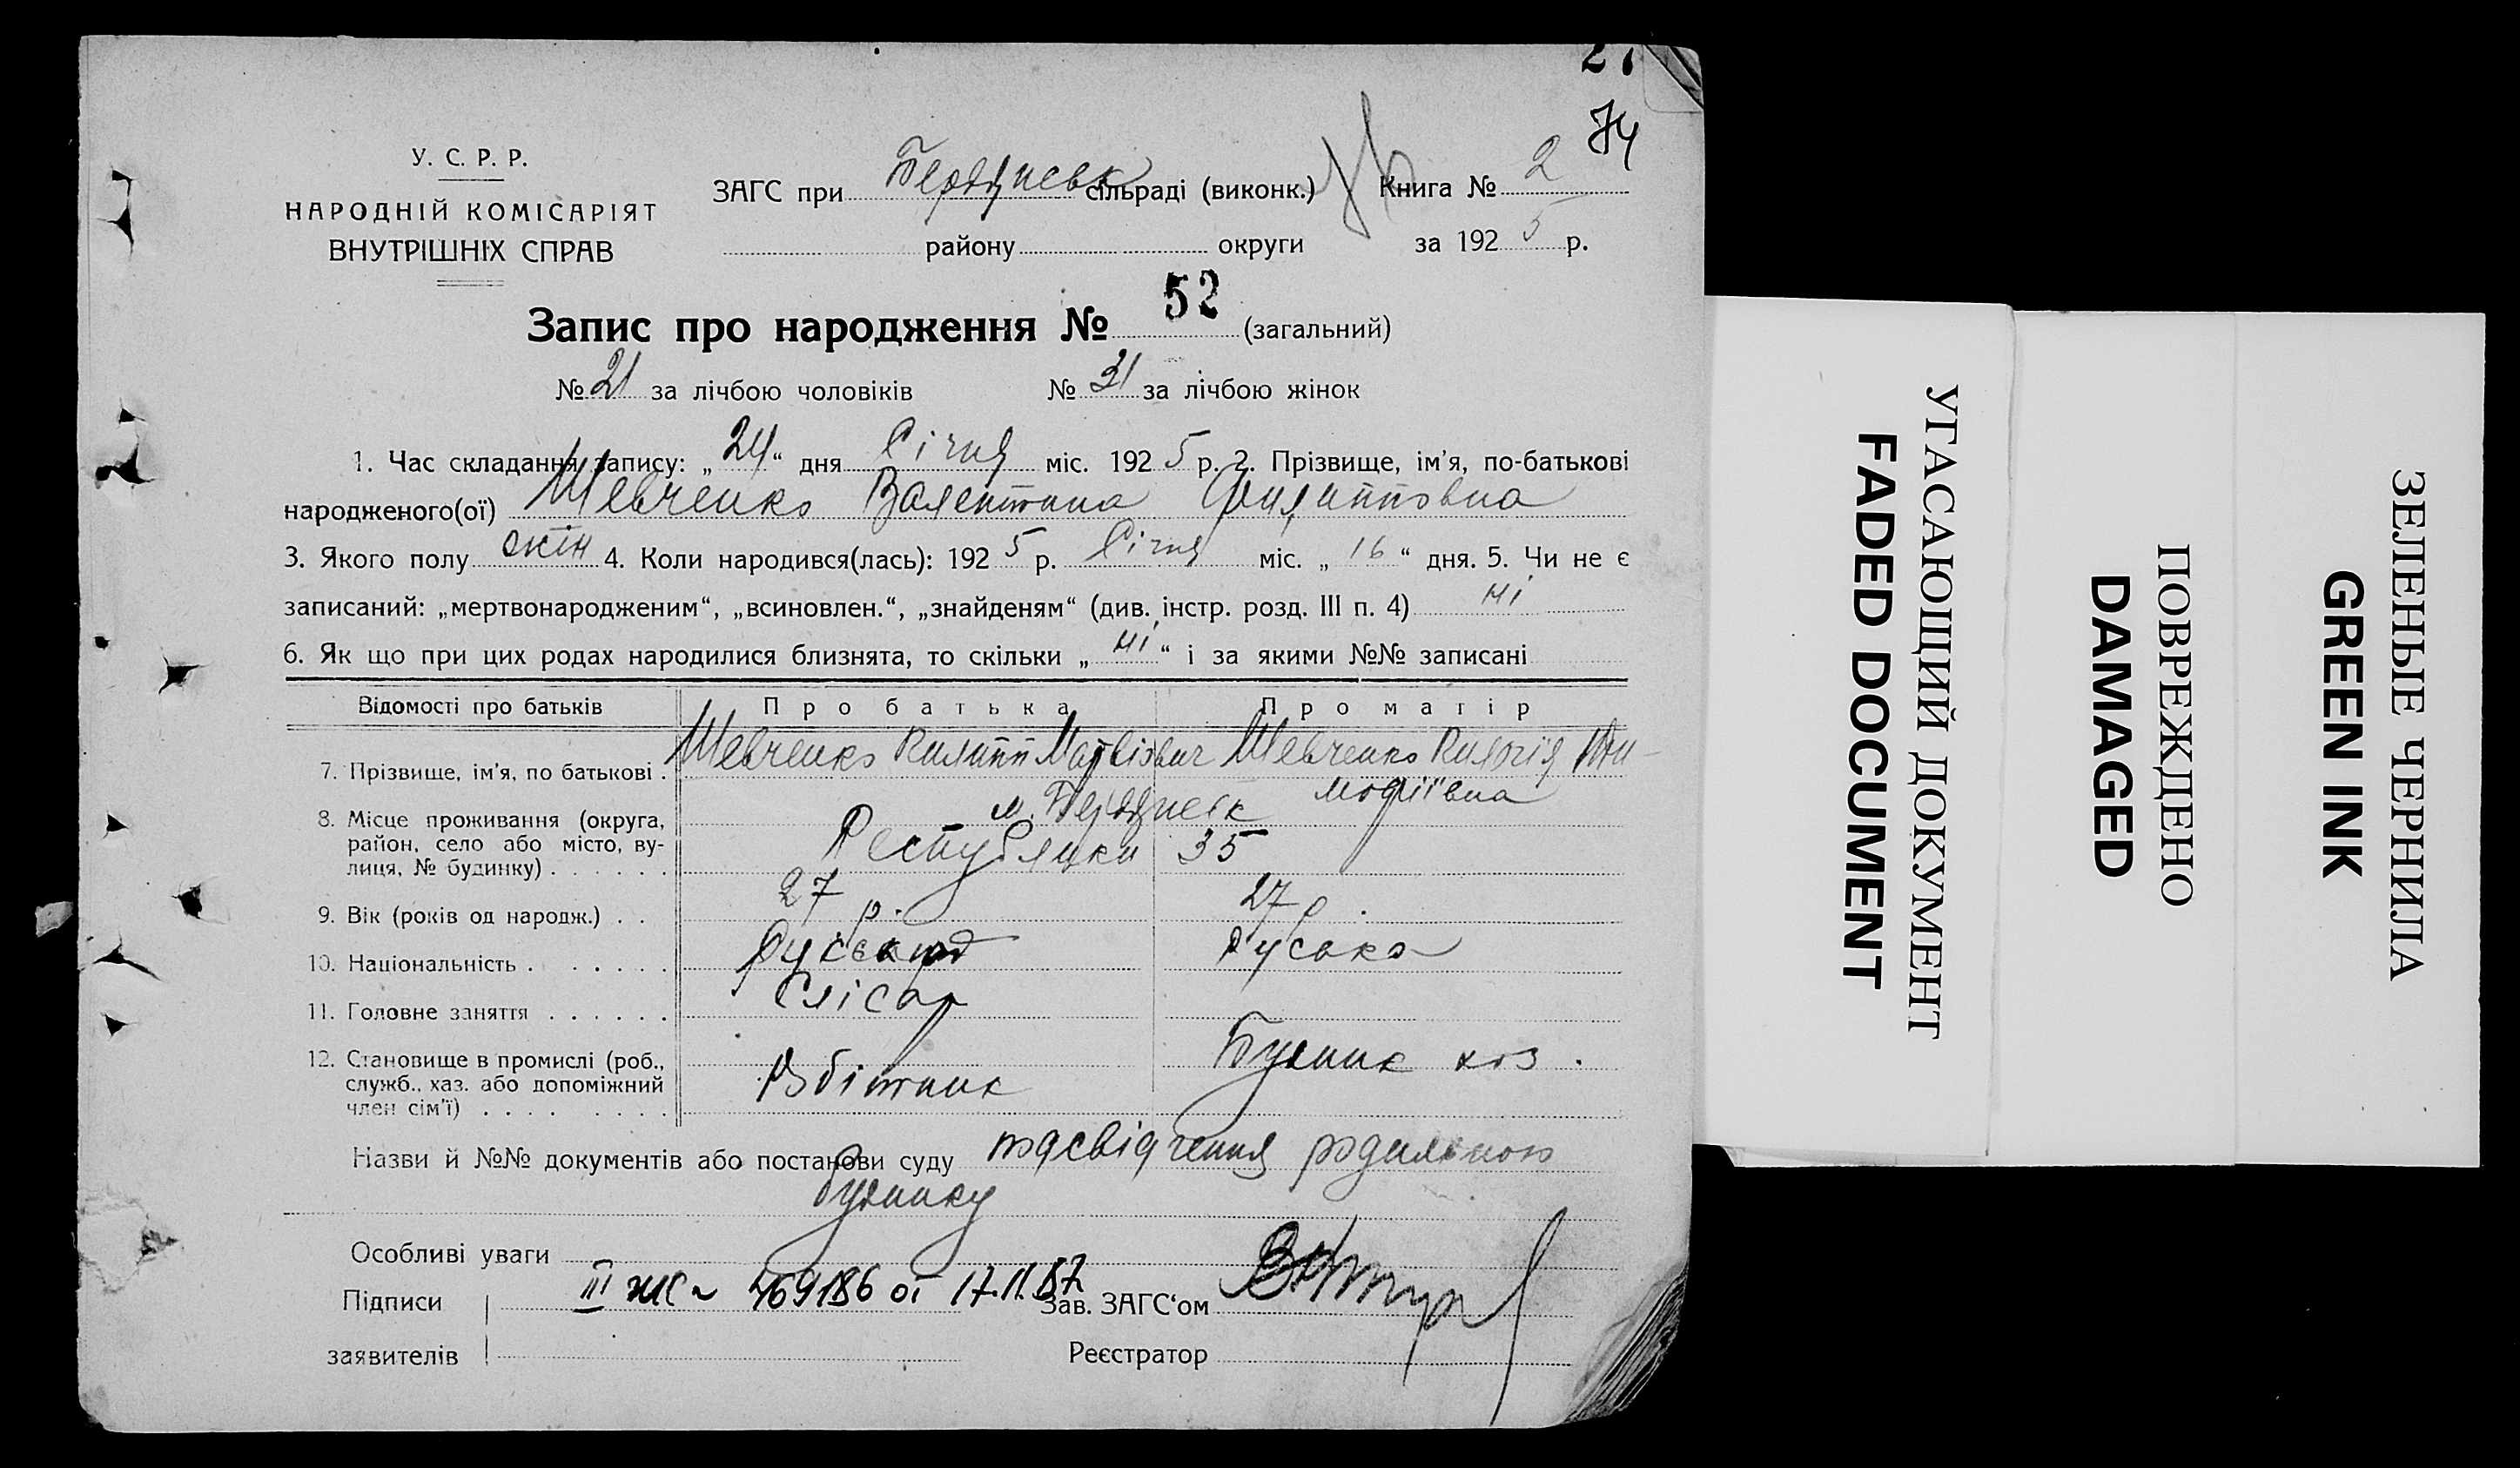 27
74
У. С. Р. Р.
НАРОДНІЙ КОМІСАРІЯТ
ВНУТРІШНІХ СПРАВ
ЗАГС при Бердянськ сільраді (виконк.) Книга № 2
району округи за 1925 р.
Запис про народження № 52 (загальний)
№ 21 за лічбою чоловіків № 31 за лічбою жінок
1. Час складання запису: „24“ дня Січня міс. 1925 р. 2. Прізвище, ім'я, по-батькові
народженого(ої) Шевченко Валентина Филипповна
3. Якого полу жін 4. Коли народився(лась): 1925 р. Січня міс. „16“ дня. 5. Чи не є
записаний: „мертвонародженим“, „всиновлен.“, „знайденям“ (див. інстр. розд. III п. 4) ні
6. Як що при цих родах народилися близнята, то скільки „ні“ і за якими №№ записані
Відомості про батьків Про батька Про матір
7. Прізвище, ім'я, по батькові . Шевченко Филипп Матвієвич Шевченко Ти-
мофіївна
8. Місце проживання (округа,
район, село або місто, ву-
лиця, № будинку) . . . . . .
м.
Республики 35
9. Вік (років од народж.) . . 27 р. 27 р.
10. Національність . . . . . . Руська
11. Головне заняття . . . . . . Слісар
12. Становище в промислі (роб.,
служб., хаз. або допоміжний
член сім'ї) . . . . . . . .
Робітник Будинк хоз.
Назви й №№ документів або постанови суду посвідчення родильного
будинку
Особливі уваги
III ЖС № 469186 от 17.11.87
Підписи Зав. ЗАГС'ом
заявителів Реєстратор
УГАСАЮЩИЙ ДОКУМЕНТ
FADED DOCUMENT
ПОВРЕЖДЕНО
DAMAGED
ЗЕЛЕНЫЕ ЧЕРНИЛА
GREEN INK